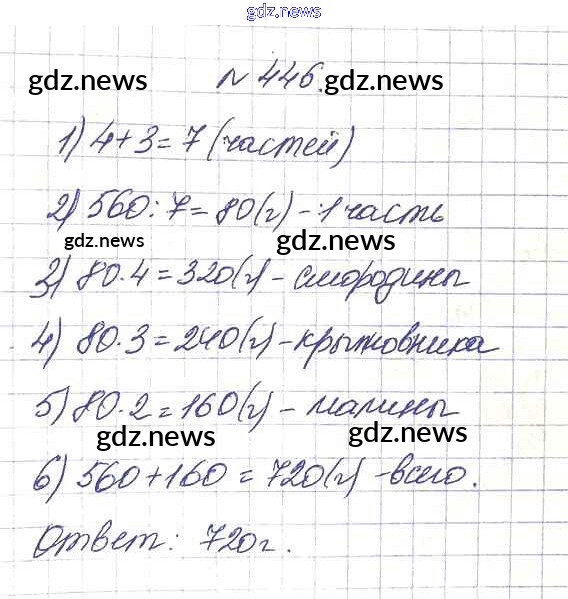 gdz.news
№ 446.
gdz.news gdz.news
1) 4+3=7 (частей)
2) 560:7=80(г)-1 часть
gdz.news gdz.news
3) 80·4=320(г)-смородины
4) 80·3=240(г)-крыжовника
5) 80·2=160(г)-малины
gdz.news gdz.news
6) 560+160=720(г)-всего.
Ответ: 720г.
gdz.news gdz.news